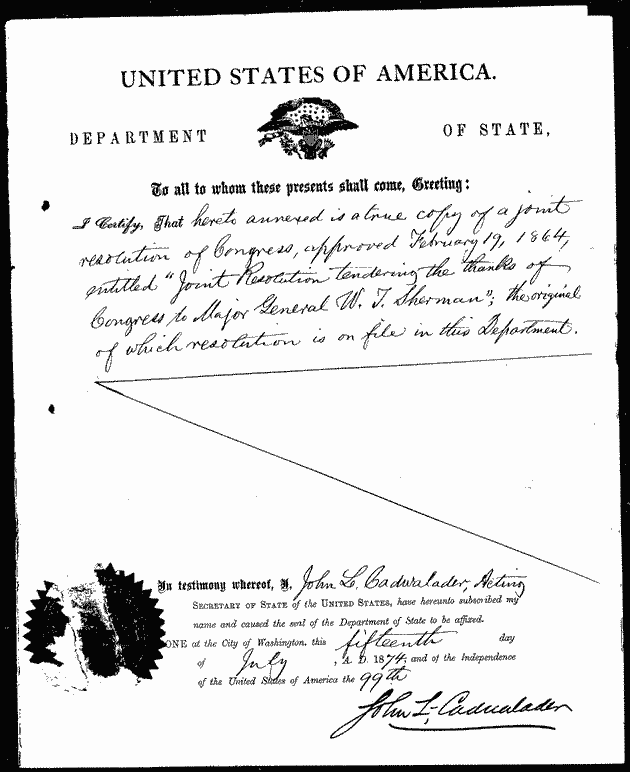 UNITED STATES OF AMERICA.
DEPARTMENT OF STATE,
To all to whom these presents shall come, Greeting:
I Certify, That hereto annexed is a true copy of a joint
resolution of Congress, approved February 19, 1864,
entitled "Joint Resolution tendering the thanks of
Congress to Major General W. T. Sherman"; the original
of which resolution is on file in this Department.
In testimony whereof, I, John L. Cadwalader, Acting
SECRETARY OF STATE of the UNITED STATES, have hereunto subscribed my
name and caused the seal of the Department of State to be affixed.
ONE at the City of Washington, this fifteenth day
of July, A. D. 1874, and of the Independence
of the United States of America the 99th
John L. Cadwalader